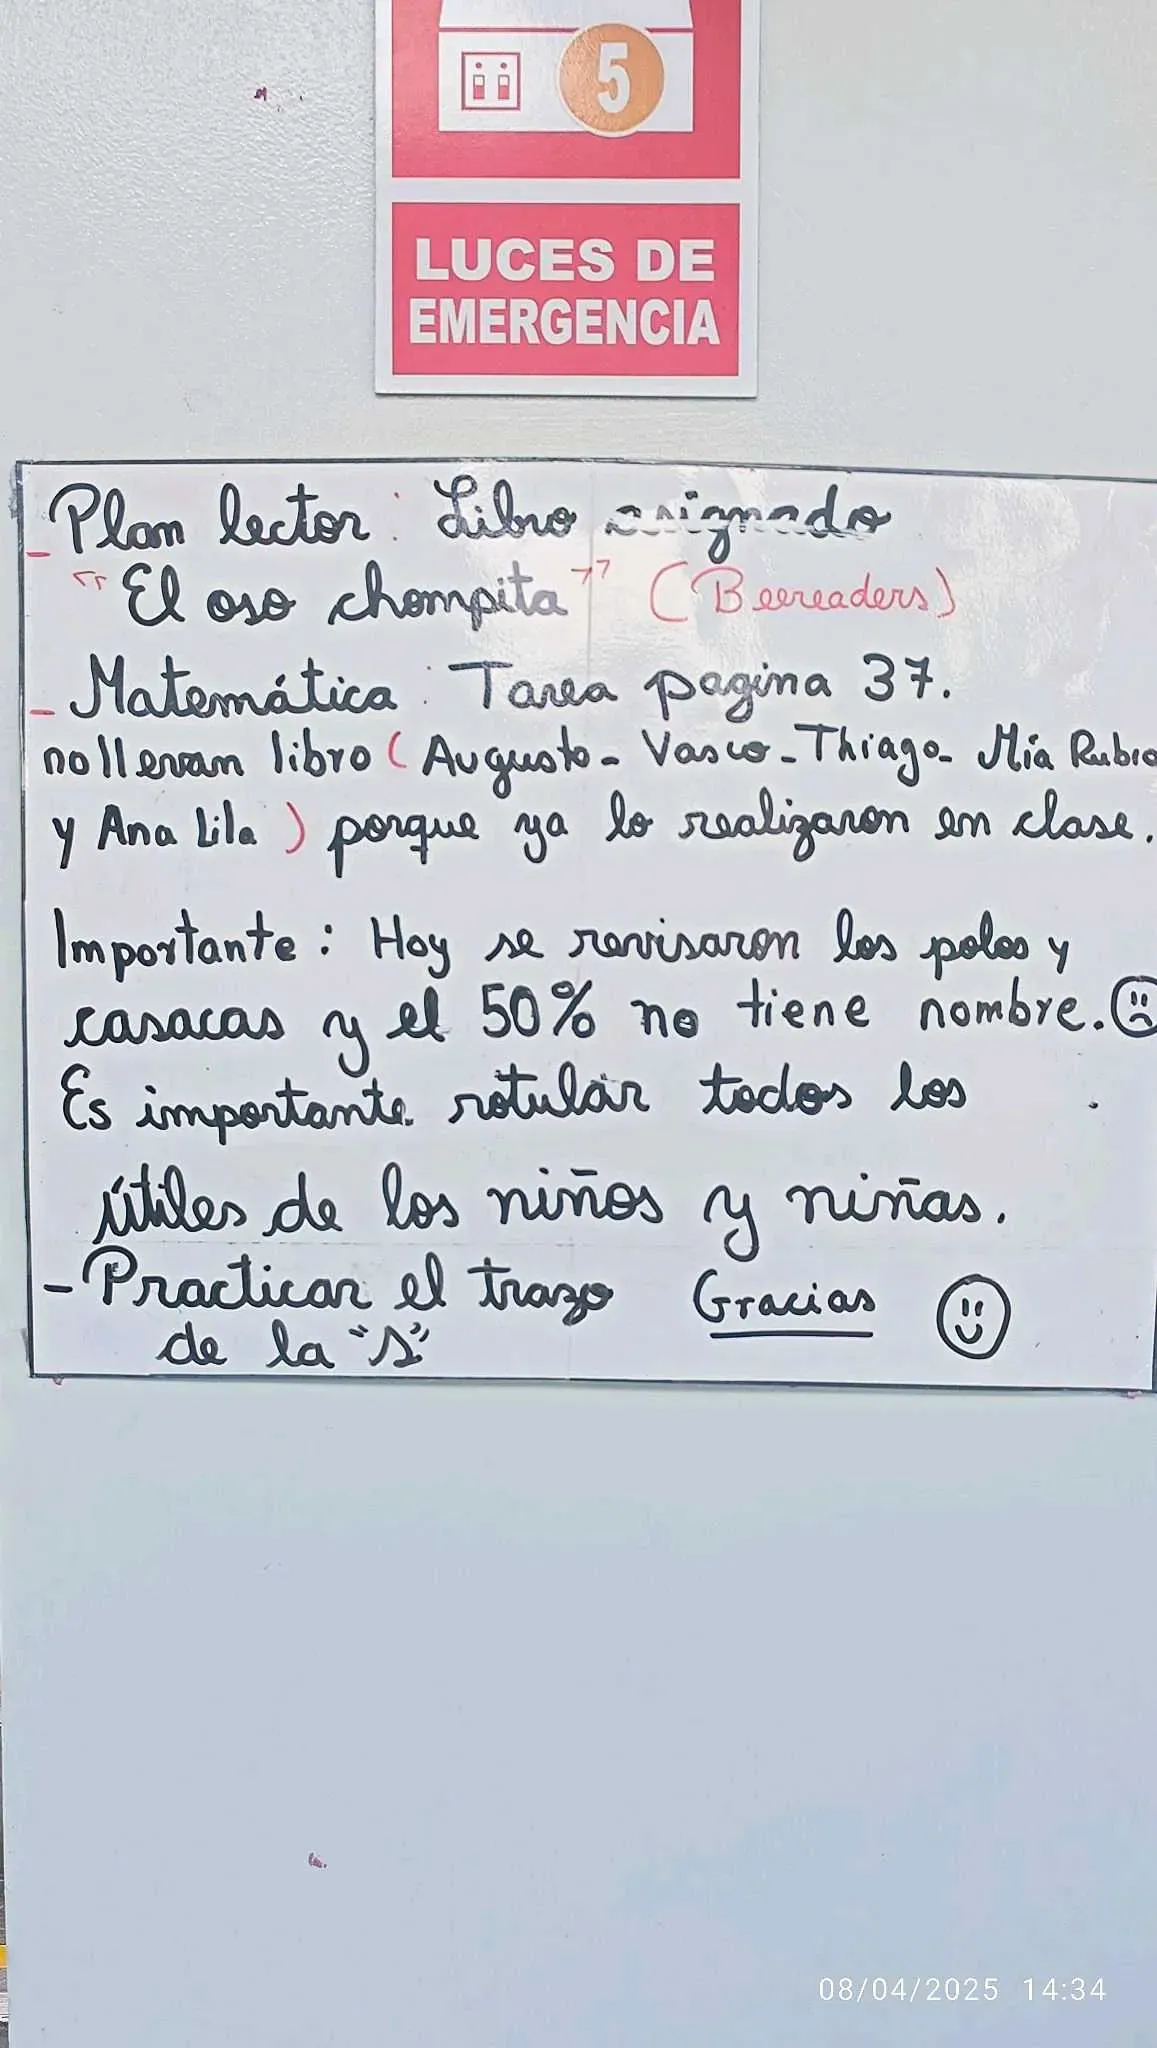 5
LUCES DE
EMERGENCIA
- Plan lector: Libro asignado
"El oso chompita" (Beereaders)
- Matemática: Tarea pagina 37.
no llevan libro (Augusto - Vasco - Thiago - Mía Rubio
y Ana Lila) porque ya lo realizaron en clase.
Importante: Hoy se revisaron los polos y
casacas y el 50% no tiene nombre.
Es importante rotular todos los
útiles de los niños y niñas.
- Practicar el trazo Gracias
de la "s"
08/04/2025 14:34